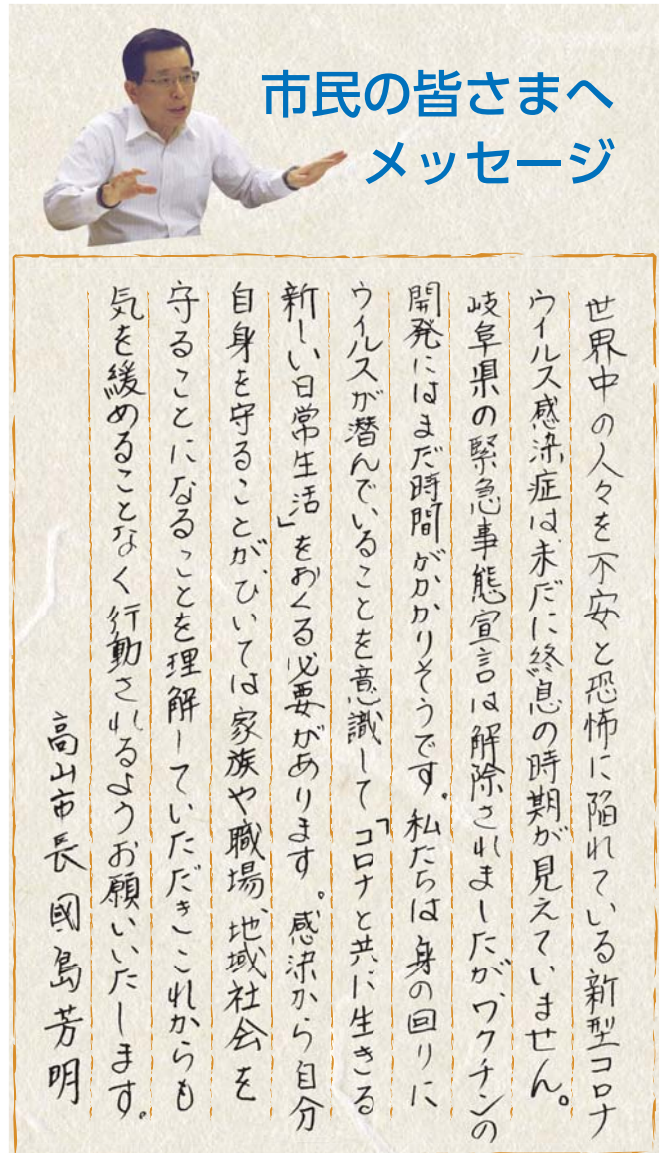 市民の皆さまへ
メッセージ
世界中の人々を不安と恐怖に陥れている新型コロナ
ウイルス感染症は未だに終息の時期が見えていません。
岐阜県の緊急事態宣言は解除されましたが、ワクチンの
開発にはまだ時間がかかりそうです。私たちは身の回りに
ウイルスが潜んでいることを意識して「コロナと共に生きる
新しい日常生活」をおくる必要があります。感染から自分
自身を守ることが、ひいては家族や職場、地域社会を
守ることになることを理解していただきこれからも
気を緩めることなく行動されるようお願いいたします。
高山市長 國島芳明